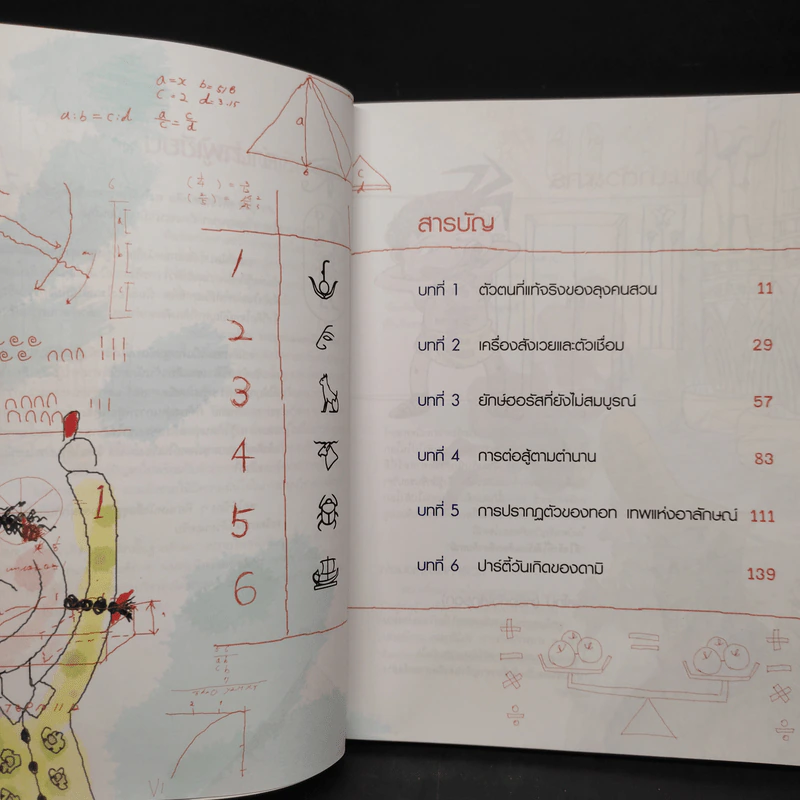 a = x b = 5/6
c + 2 d = 3.15
a : b = c : d a/c = c/d
a
b
c
d
1
2
3
4
5
6
1
สารบัญ
บทที่ 1 ตัวตนที่แท้จริงของลุงคนสวน 11
บทที่ 2 เครื่องสังเวยและตัวเชื่อม 29
บทที่ 3 ยักษ์ฮอรัสที่ยังไม่สมบูรณ์ 57
บทที่ 4 การต่อสู้ตามตำนาน 83
บทที่ 5 การปรากฏตัวของทอท เทพแห่งอาลักษณ์ 111
บทที่ 6 ปาร์ตี้วันเกิดของดามิ 139
+ = +
− −
× ×
÷ ÷